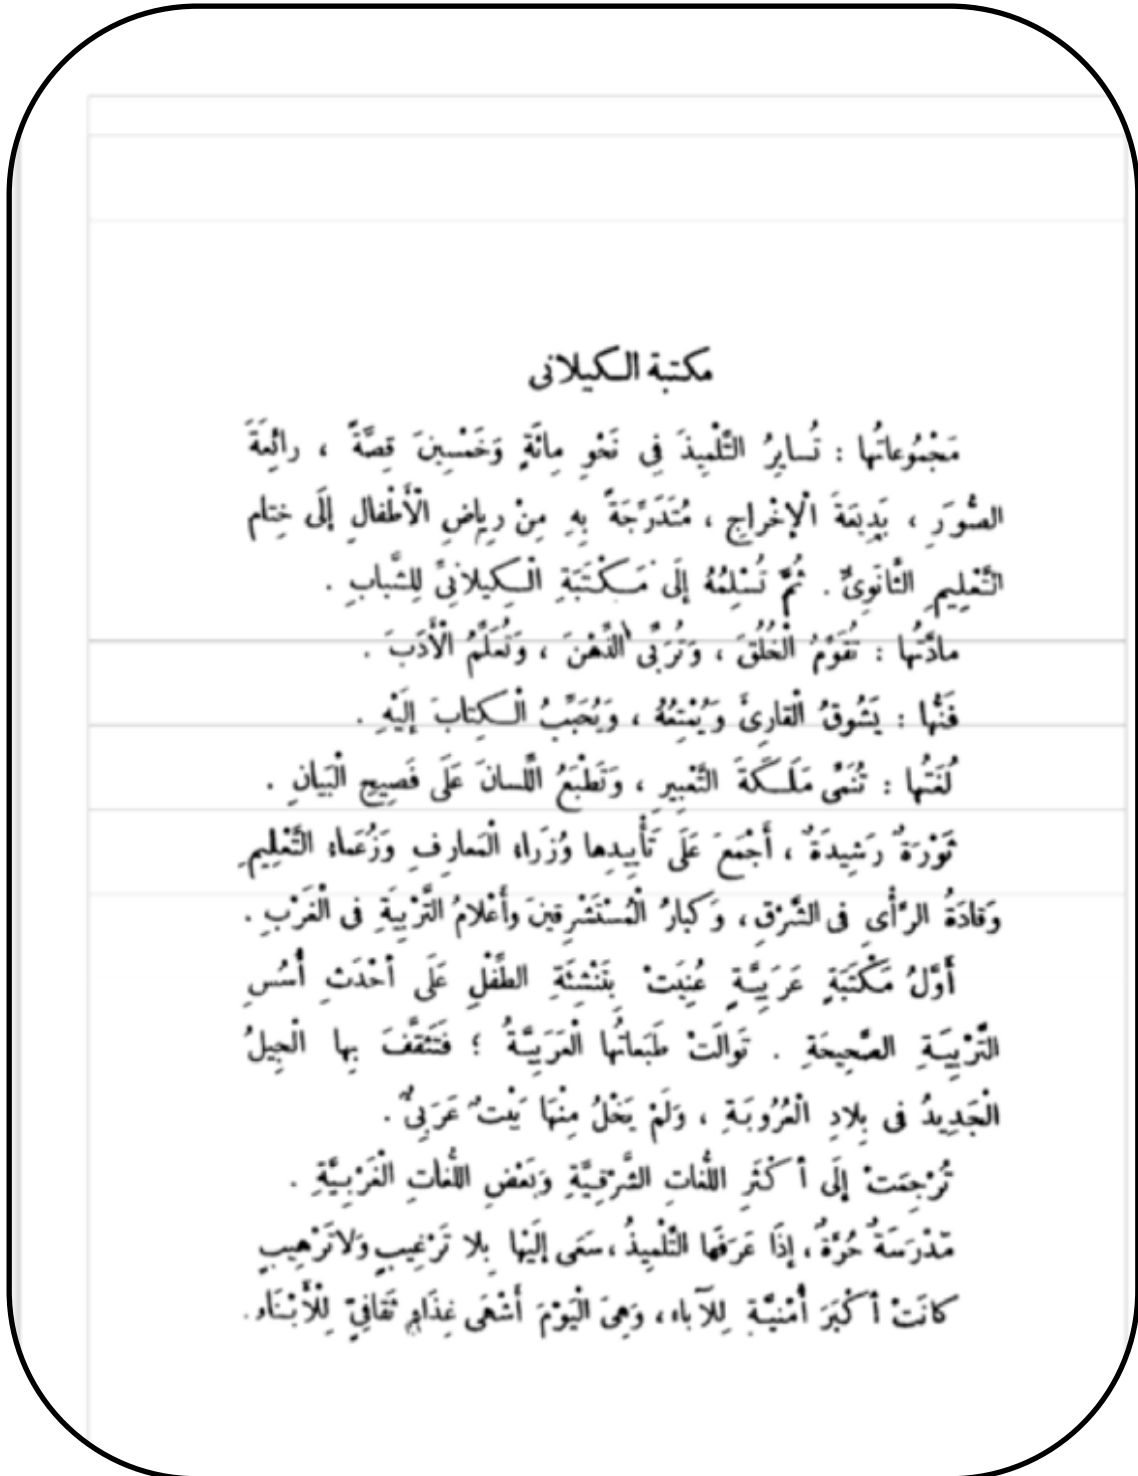 مكتبة الكيلانى
مَجْمُوعاتُها : تُسايِرُ التِّلْمِيذَ فِى نَحْوِ مِائَةٍ وَخَمْسِينَ قِصَّةً ، رائِعَةَ
الصُّوَرِ ، بَدِيعَةَ الْإِخْراجِ ، مُتَدَرِّجَةً بِهِ مِنْ رِياضِ الْأَطْفالِ إِلَى خِتام
التَّعْلِيمِ الثَّانَوِىِّ . ثُمَّ تُسْلِمُهُ إِلَى مَكْتَبَةِ الْكِيلانِىِّ لِلشَّبابِ .
مادَّتُها : تُقَوِّمُ الْخُلُقَ ، وَتُرَبِّى الذِّهْنَ ، وَتُعَلِّمُ الْأَدَبَ .
فَنُّها : يَشُوقُ الْقارِئَ وَيُمْتِعُهُ ، وَيُحَبِّبُ الْكِتابَ إِلَيْهِ .
لُغَتُها : تُنَمِّى مَلَكَةَ التَّعْبِيرِ ، وَتَطْبَعُ اللِّسانَ عَلَى فَصِيحِ الْبَيانِ .
ثَوْرَةٌ رَشِيدَةٌ ، أَجْمَعَ عَلَى تَأْيِيدِها وُزَراءُ الْمَعارِفِ وَزُعَماءُ التَّعْلِيمِ
وَقادَةُ الرَّأْىِ فى الشَّرْقِ ، وَكِبارُ الْمُسْتَشْرِقِينَ وأَعْلامُ التَّرْبِيَةِ فى الْغَرْبِ .
أَوَّلُ مَكْتَبَةٍ عَرَبِيَّةٍ عُنِيَتْ بِتَنْشِئَةِ الطِّفْلِ عَلَى أَحْدَثِ أُسُسِ
التَّرْبِيَةِ الصَّحِيحَةِ . تَوالَتْ طَبَعاتُها الْعَرَبِيَّةُ ؛ فَتَثَقَّفَ بِها الْجِيلُ
الْجَدِيدُ فى بِلادِ الْعُرُوبَةِ ، وَلَمْ يَخْلُ مِنْها بَيْتٌ عَرَبِىٌّ .
تُرْجِمَتْ إِلَى أَكْثَرِ اللُّغاتِ الشَّرْقِيَّةِ وَبَعْضِ اللُّغاتِ الْغَرْبِيَّةِ .
مَدْرَسَةٌ حُرَّةٌ ، إِذَا عَرَفَها التِّلْمِيذُ ، سَعَى إِلَيْها بِلا تَرْغِيبٍ وَلا تَرْهِيبٍ
كانَتْ أَكْبَرَ أُمْنِيَّةٍ لِلْآباءِ ، وَهِىَ الْيَوْمَ أَشْهَى غِذَاءٍ ثَقافِىٍّ لِلْأَبْنَاءِ .